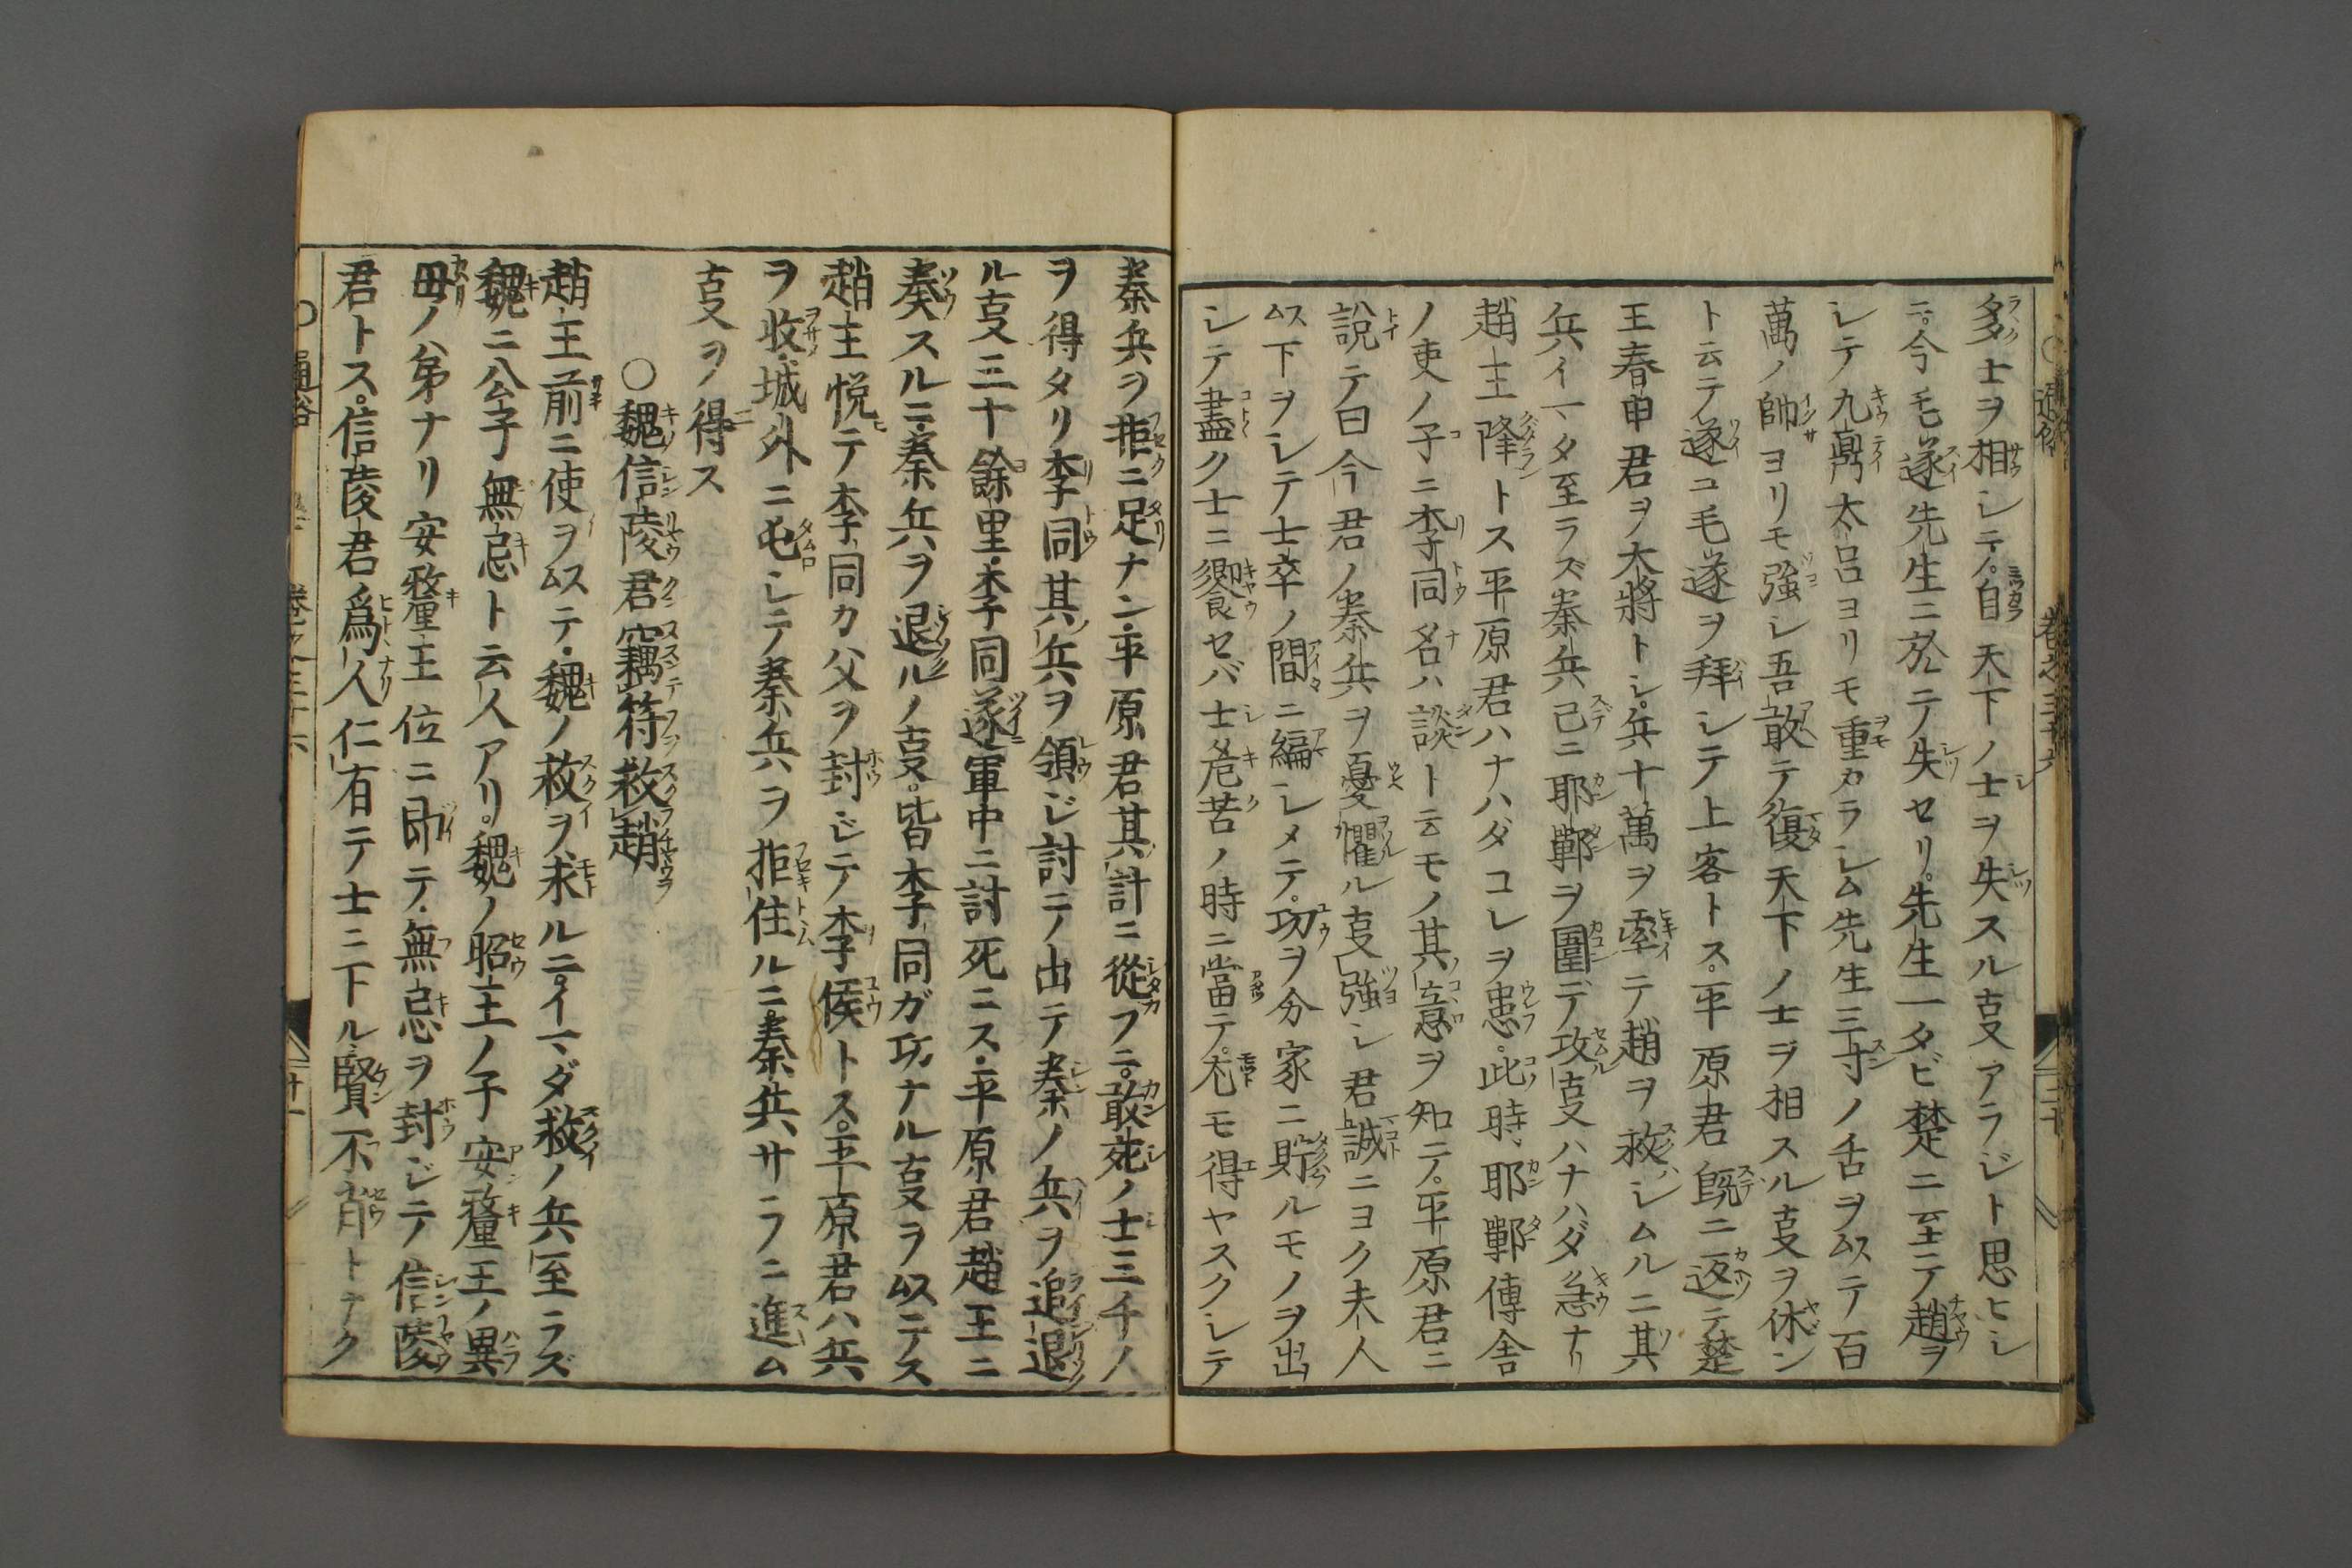 多士ヲ相シテ。自天下ノ士ヲ失スル叓アラジト思ヒシ
ニ。今毛遂先生ニ於テ失セリ。先生一タビ楚ニ至テ趙ヲ
シテ九鼎大呂ヨリモ重カラシム先生三寸ノ舌ヲ以テ百
萬ノ師ヨリモ強シ吾敢テ復天下ノ士ヲ相スル叓ヲ休ン
ト云テ遂ニ毛遂ヲ拜シテ上客トス。平原君既ニ返テ楚
王春申君ヲ大將トシ。兵十萬ヲ率テ趙ヲ救シムルニ其
兵イマタ至ラズ秦兵已ニ邯鄲ヲ圍デ攻叓ハナハダ急ナリ
趙王降トス平原君ハナハダコレヲ患。此時邯鄲傳舍
ノ吏ノ子ニ李同名ハ談ト云モノ其意ヲ知テ。平原君ニ
說テ曰今君ノ秦兵ヲ憂懼ル叓強シ君誠ニヨク夫人
以下ヲシテ士卒ノ間ニ編シメテ。功ヲ分家ニ貯ルモノヲ出
シテ盡ク士ニ饗セバ士危苦ノ時ニ當テ。尤モ得ヤスクシテ
秦兵ヲ拒ニ足ナン平原君其計ニ從フニ。敢死ノ士三千ノ
ヲ得タリ李同其兵ヲ領ジ討ニノ出テ秦ノ兵ヲ追退
ル叓三十餘里李同遂軍中ニ討死ニス平原君趙王ニ
奏スルニ秦兵ヲ退ルノ叓。皆李同ガ功ナル叓ヲ以ニテス
趙王悅テ李同カ父ヲ封ジテ李侯トス。平原君ハ兵
ヲ收城外ニ屯シテ秦兵ヲ拒住ルニ。秦兵サラニ進ム
叓ヲ得ス
○魏信陵君竊符救趙
趙王前ニ使ヲ以テ魏ノ救ヲ求ルニ。イマダ救ノ兵至ラズ
魏ニ公子無忌ト云人アリ。魏ノ昭王ノ子安釐王ノ異
母ノ弟ナリ安釐王位ニ即テ無忌ヲ封ジテ信陵
君トス。信陵君爲人仁有テ士ニ下ル賢不肖トテク